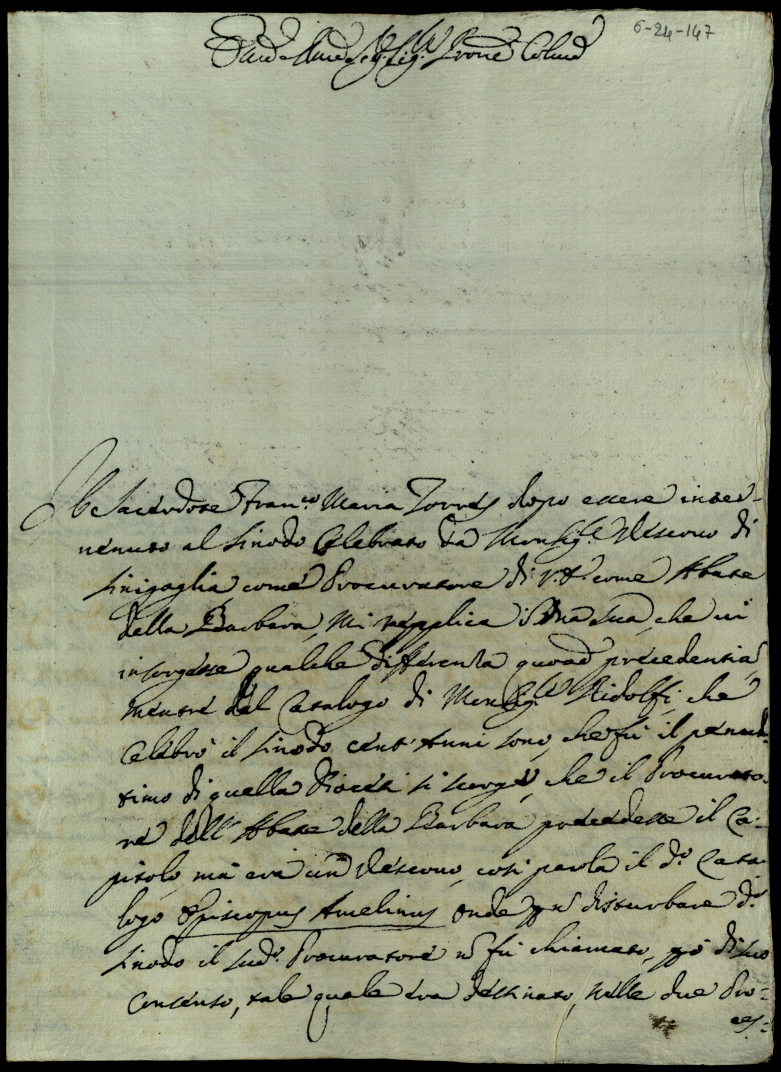 6-24-147
Il Sacerdote Fran.co Maria Torres dopo essere inter-
venuto al Sinodo Celebrato da Monsig.re Vescovo di
Sinigaglia come Procuratore di V.S. come Abate
della Barbara, mi replica una sua, che vi
insorgesse qualche differenza quoad precedentia,
mentre dal Catalogo di Monsig.re Ridolfi, che
Celebrò il Sinodo cent'Anni sono, che fù il penul-
timo di quella Diocesi si scorge, che il Procurato-
re dell'Abate della Barbara precedesse il Ca-
pitolo, mà era un Vescovo, così parla il d.o Cata-
logo Episcopus Amelinus onde p n disturbare d.o
Sinodo il sud.o Procuratore n fù chiamato, però di suo
Consenso, tale quale era destinato, nelle due Pro-
ces-